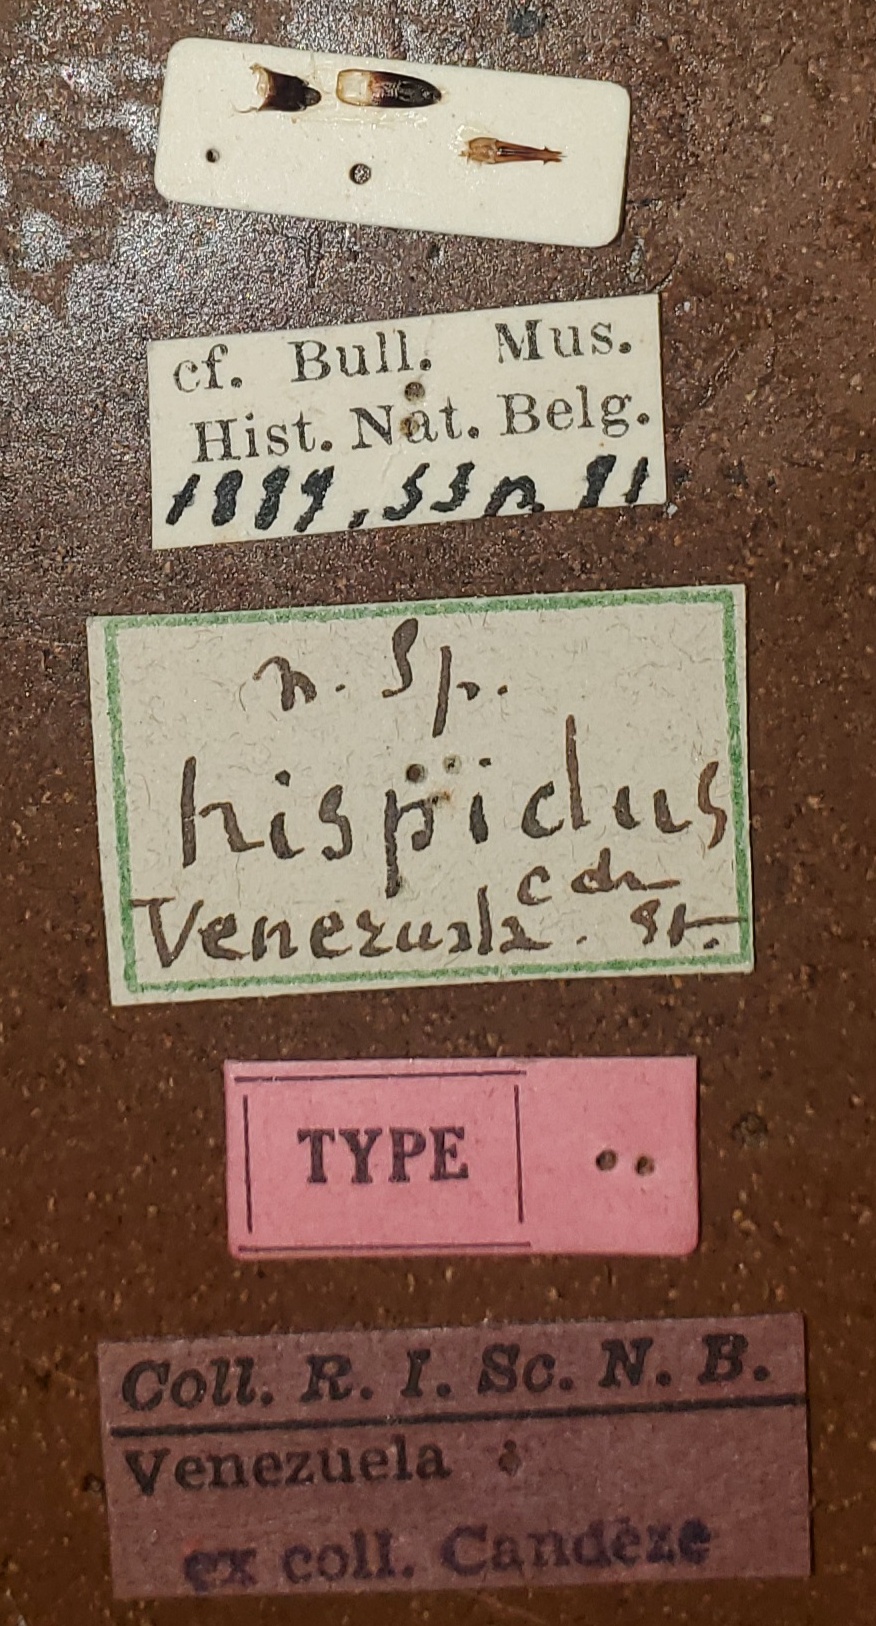 cf. Bull. Mus.
Hist. Nat. Belg.
1889, 33 p. 91
n. sp.
hispidus
Cdz
Venezuela. St.
TYPE
Coll. R. I. Sc. N. B.
Venezuela
ex coll. Candèze